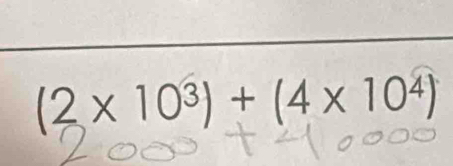 (2 × 10³) + (4 × 10⁴)
2000 + 40000